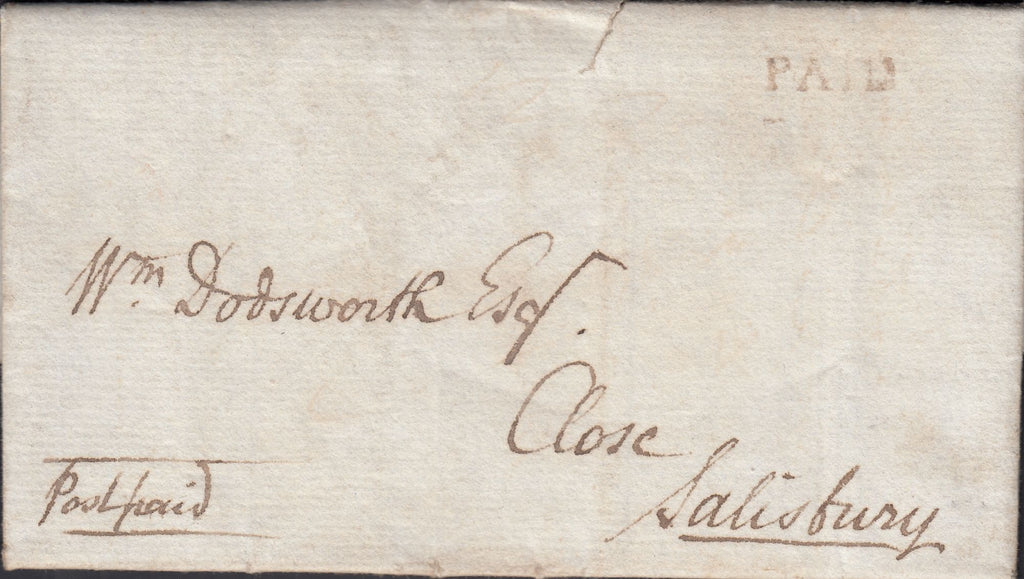 PAID
Wm Dodsworth Esqr.
Close
Salisbury
Post paid